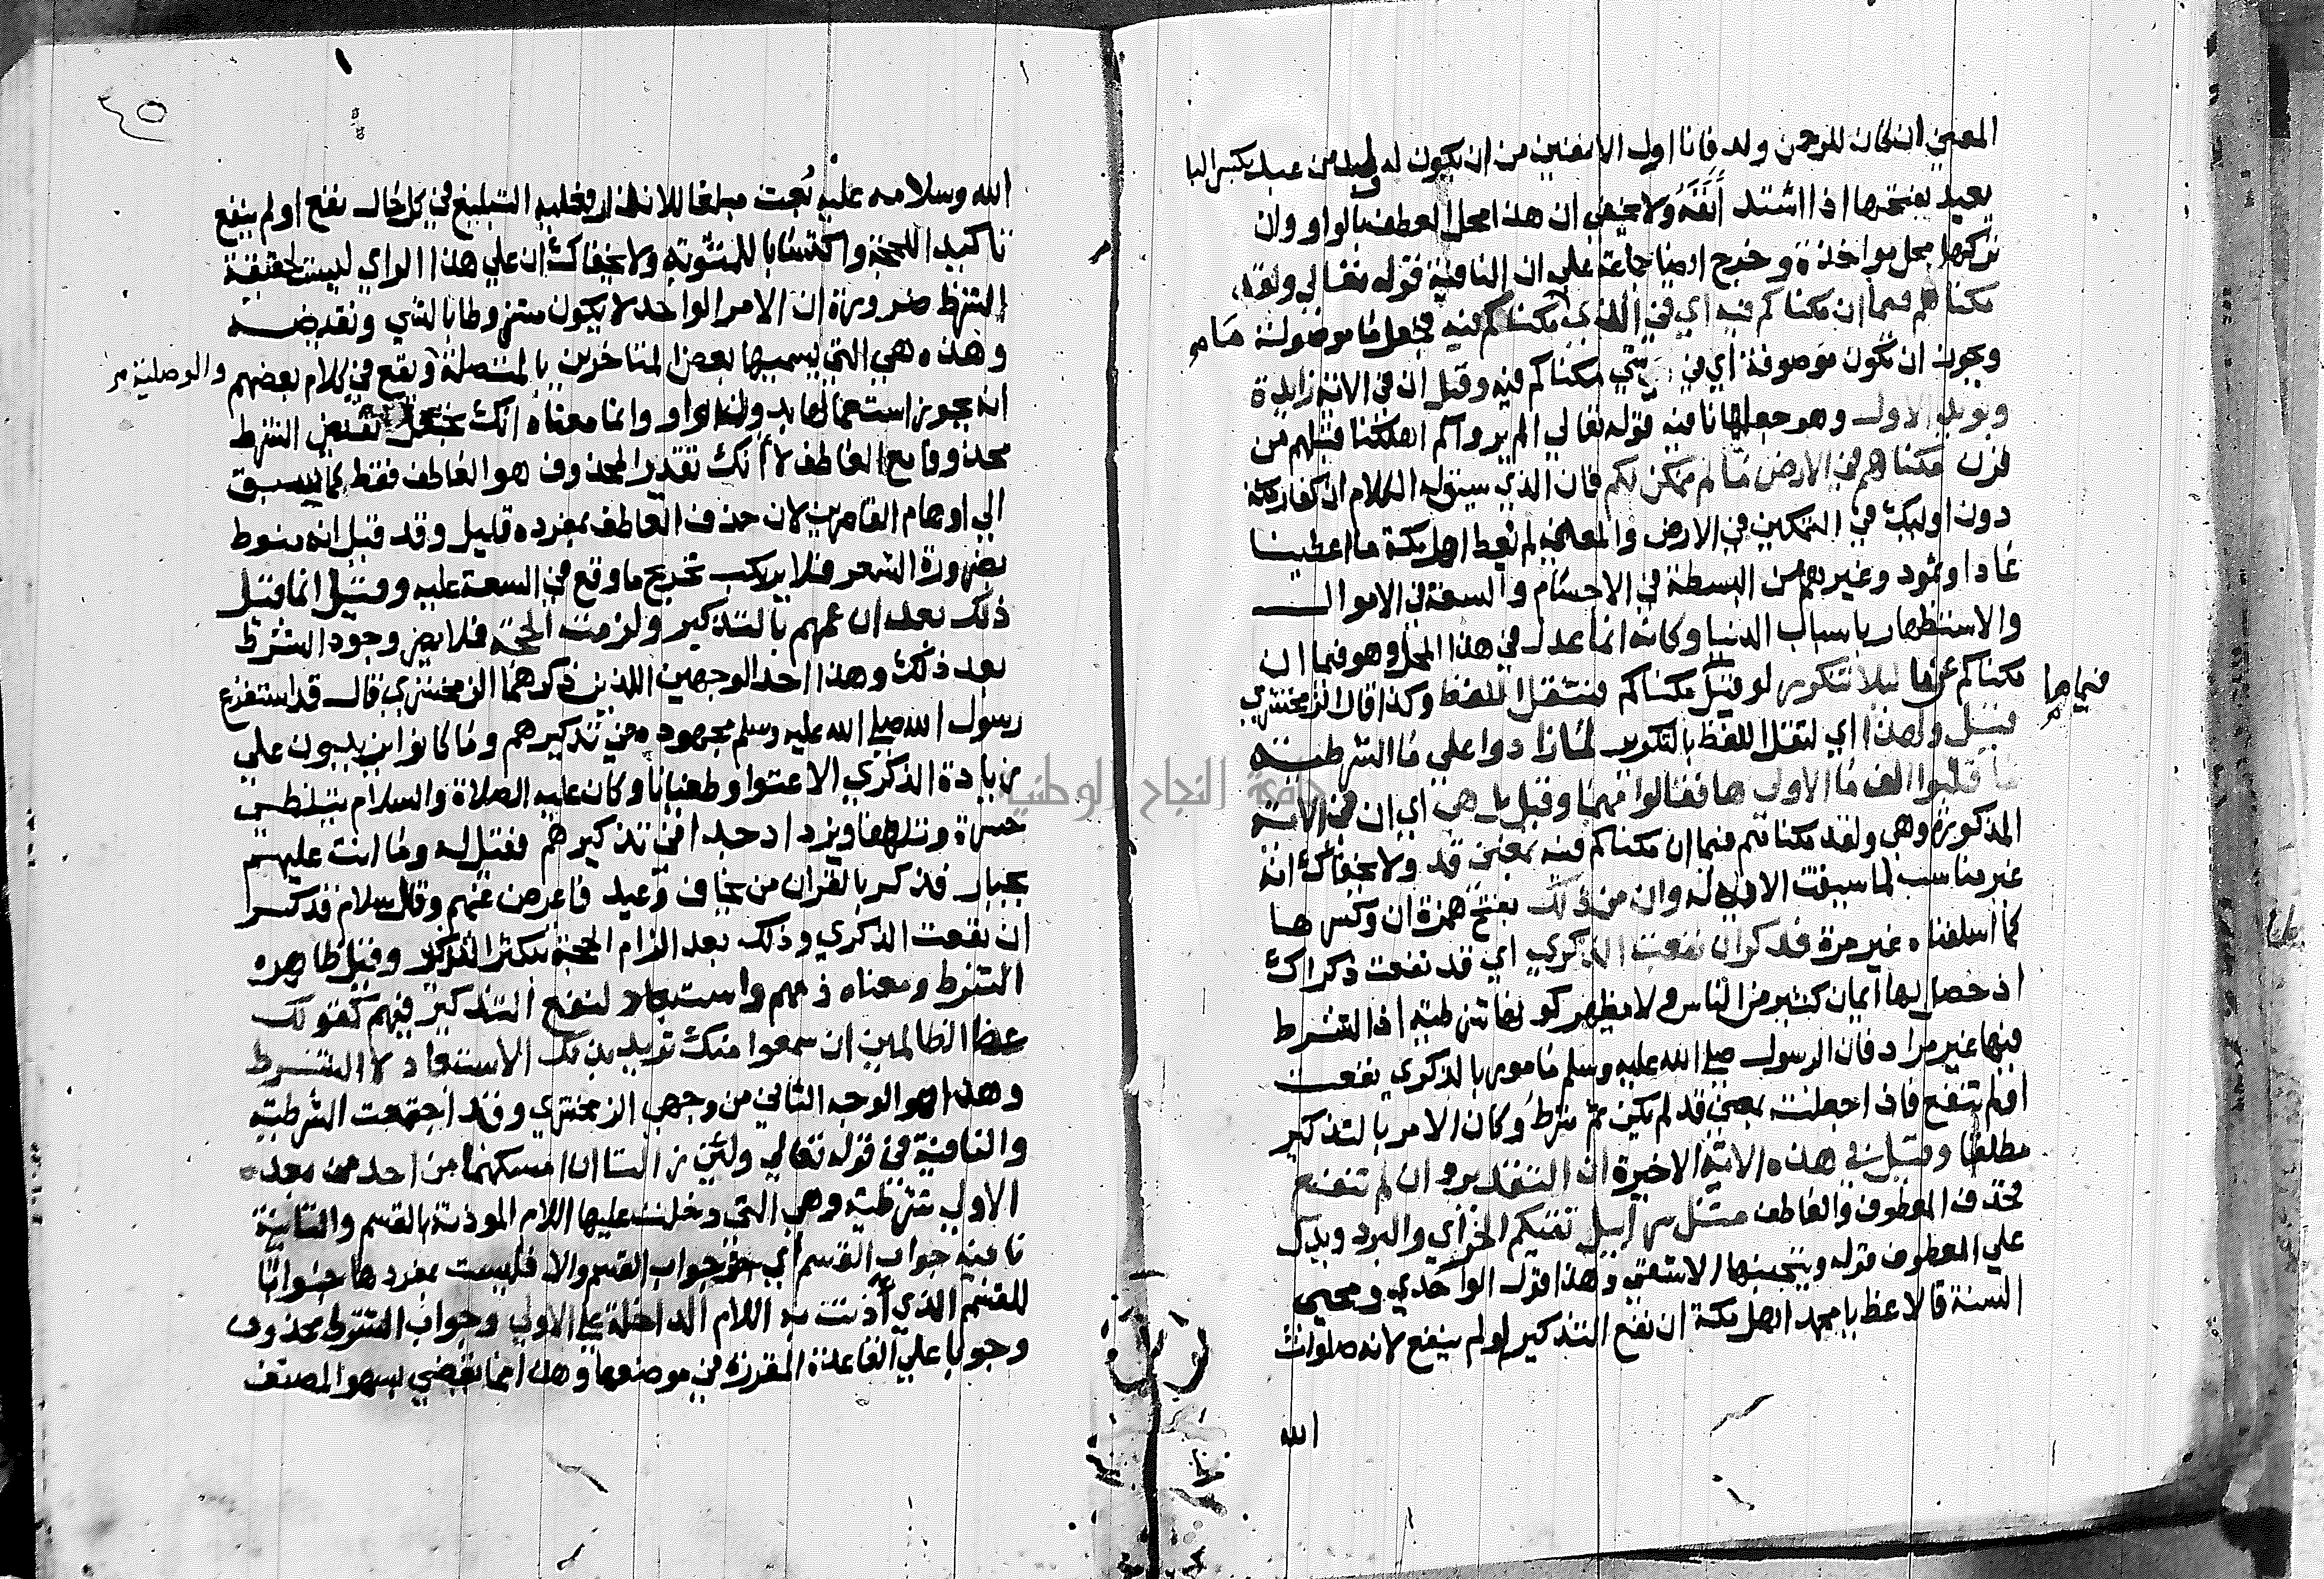 المعني ان كان للرحمن ولد فانا اول الانفين من ان يكون له ولد من عبد بكسر البا
يعبد بفتحها اذا اشتد أَنَفُهُ ولا يخفى ان هذا محل العطف بالواو وان
تركها محل مواخذة وخرج ايضا جماعة علي ان النافية قوله تعالي ولقد
مكناهم فيما ان مكناكم فيه اي في الذي مكناكم فيه فجعل ما موصولة
ويجوز ان تكون موصوفة اي في شي مكناكم فيه وقيل ان في الاية زايدة
ويويد الاول وهو جعلها نافية قوله تعالي الم يروا كم اهلكنا قبلهم من
قرن مكناهم في الارض ما لم نمكن لكم فان الذي سيق له الكلام ان كفار مكة
دون اوليك في التمكين في الارض والمعني لم نعط اهل مكة ما اعطينا
عادا وثمود وغيرهم من البسطة في الاجسام والسعة في الاموال
والاستظهار باسباب الدنيا وكانه انما عدل في هذا المحل وهو فيما ان
مكناكم عن ما ليلا تتكرر لو قيل مكناكم فيثقل اللفظ وكذا قال الزمخشري
فيما ما
قيل ولهذا اي لثقل اللفظ بالتكرير لما زادوا علي ما الشرطية
ما قلبوا الف ما الاولي ها فقالوا مهما وقيل بل هي اي ان في الاية
المذكورة وهي ولقد مكناهم فيما ان مكناكم فيه بمعني قد ولا يخفاك انه
غير مناسب لما سيقت الاية له وان من ذلك بفتح همزة ان وكسرها
كما اسلفناه غير مرة فذكر ان نفعت الذكري اي قد نفعت ذكراك
اذ حصل بها ايمان كثير من الناس ولا يظهر كونها شرطية اذ الشرط
فيها غير مراد فان الرسول صلي الله عليه وسلم مامور بالذكري نفعت
اولم تنفع فاذا جعلت بمعني قد لم يكن ثم شرط وكان الامر بالتذكير
مطلقا وقيل في هذه الاية الاخيرة ان التقدير وان لم تنفع
فحذف المعطوف والعاطف مثل سرابيل تقيكم الحر اي والبرد ويدل
علي المعطوف قوله ويتجنبها الاشقي وهذا قول الواحدي ومحيي
السنة قالا عظ يا محمد اهل مكة ان نفع التذكير او لم ينفع لانه صلوات
الله
٤٥
الله وسلامه عليه بُعث مبلغا للانذار فعليه التبليغ في كل حال نفع او لم ينفع
تاكيدا للحجة واكتسابا للمثوبة ولا يخفاك ان علي هذا الراي ليست حقيقة
الشرط ضرورة ان الامر الواحد لا يكون مشروطا بالشي ونقيضه
وهذه هي التي يسميها بعض المتاخرين بالمتصلة ويقع في كلام بعضهم
والوصلية
انه يجوز استعمالها بدون الواو وانما معناه انك تجعل نقيض الشرط
محذوفا مع العاطف لا أنك تقدر المحذوف هو العاطف فقط كما يسبق
الي اوهام القاصرين لان حذف العاطف بمفرده قليل وقد قيل انه منوط
بضرورة الشعر فلا يركب تخريج ما وقع في السعة عليه وقيل انما قيل
ذلك بعد ان عمهم بالتذكير ولزمت الحجة فلا يضر وجود الشرط
بعد ذلك وهذا احد الوجهين اللذين ذكرهما الزمخشري قال قد استفرغ
رسول الله صلي الله عليه وسلم مجهوده في تذكيرهم وما كانوا يزيدون علي
زيادة الذكري الا عتوا وطغيانا وكان عليه الصلاة والسلام يتلظي
حسرة وتلهفا ويزداد جدا في تذكيرهم فقيل له وما انت عليهم
بجبار فذكر بالقران من يخاف وعيد فاعرض عنهم وقل سلام فذكر
ان نفعت الذكري وذلك بعد الزام الحجة بتكثر التذكير وقيل ظاهره
الشرط ومعناه ذمهم واستبعاد لنفع التذكير فيهم كقولك
عظ الظالمين ان سمعوا منك تريد بذلك الاستبعاد لا الشرط
وهذا هو الوجه الثاني من وجهي الزمخشري وقد اجتمعت الشرطية
والنافية في قوله تعالي ولئن زالتا ان امسكهما من احد من بعده
الاولي شرطية وهي التي دخلت عليها اللام الموذنة بالقسم والثانية
نافية جواب القسم اي جزء جواب القسم والا فليست بمفردها جوابا
للقسم الذي أذنت به اللام الداخلة علي الاولي وجواب الشرط محذوف
وجوبا علي القاعدة المقررة في موضعها وهذا مما يقضي بسهو المصنف
جامعة النجاح الوطنية